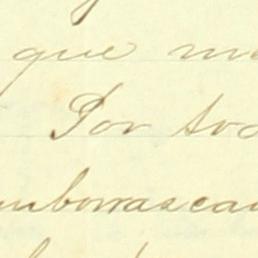 que me
Por tod
mborrascan